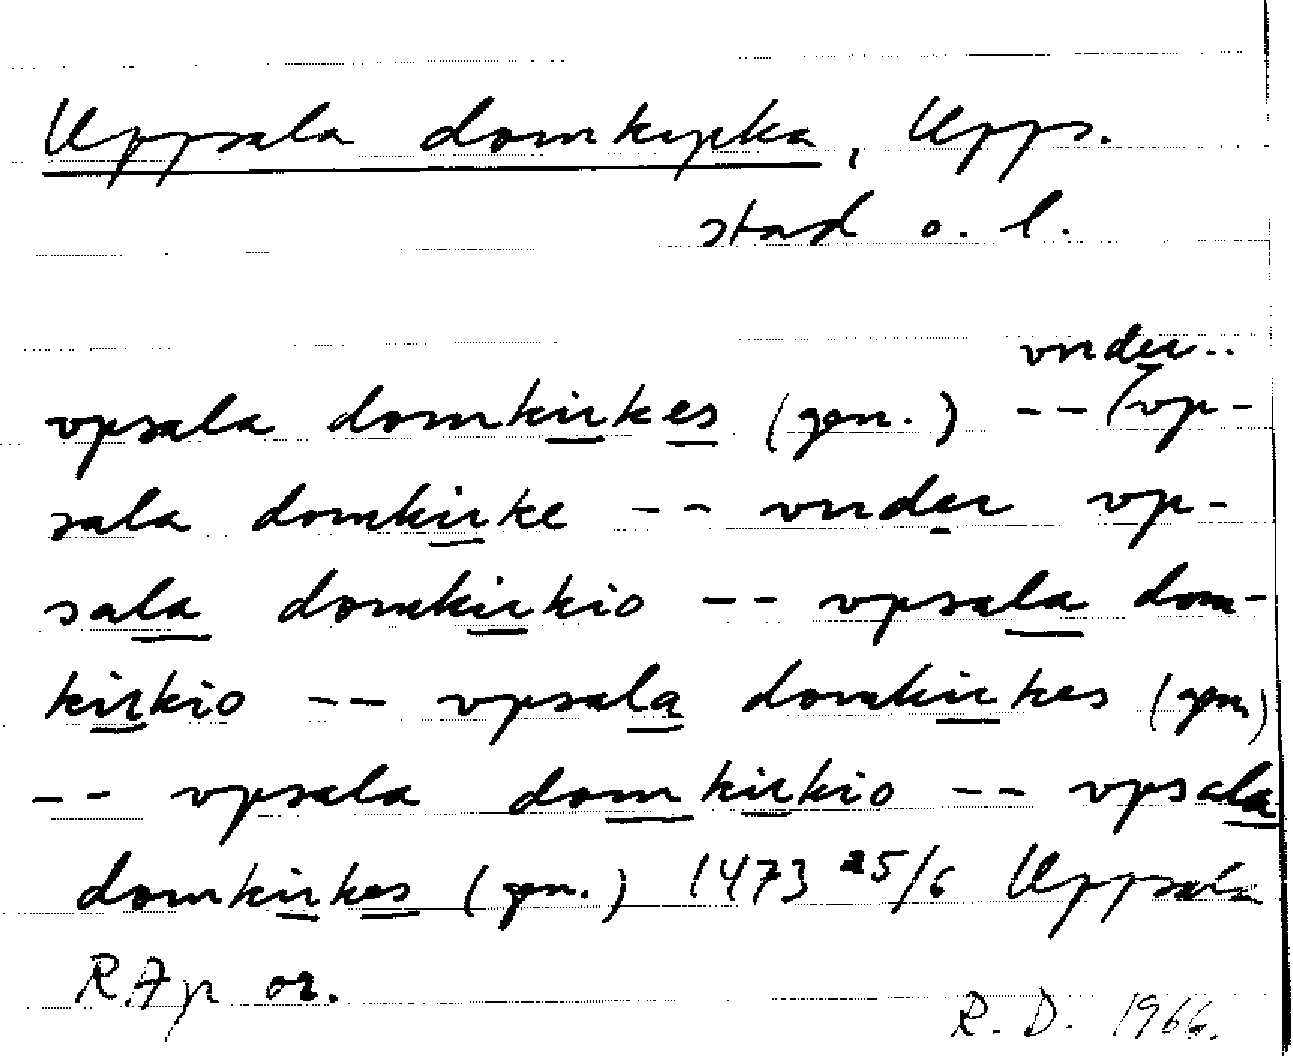 Uppsala domkyrka, Upps.
stad o. l.
vnder..
vpsala domkirkes (gen.) -- (vp-
sala domkirke -- vnder vp-
sala domkirkio -- vpsala dom-
kirkio -- vpsala domkirkes (gen)
-- vpsala domkirkio -- vpsala
domkirkes (gen.) 1473 25/6 Uppsala
RAp or.
R. D. 1966.